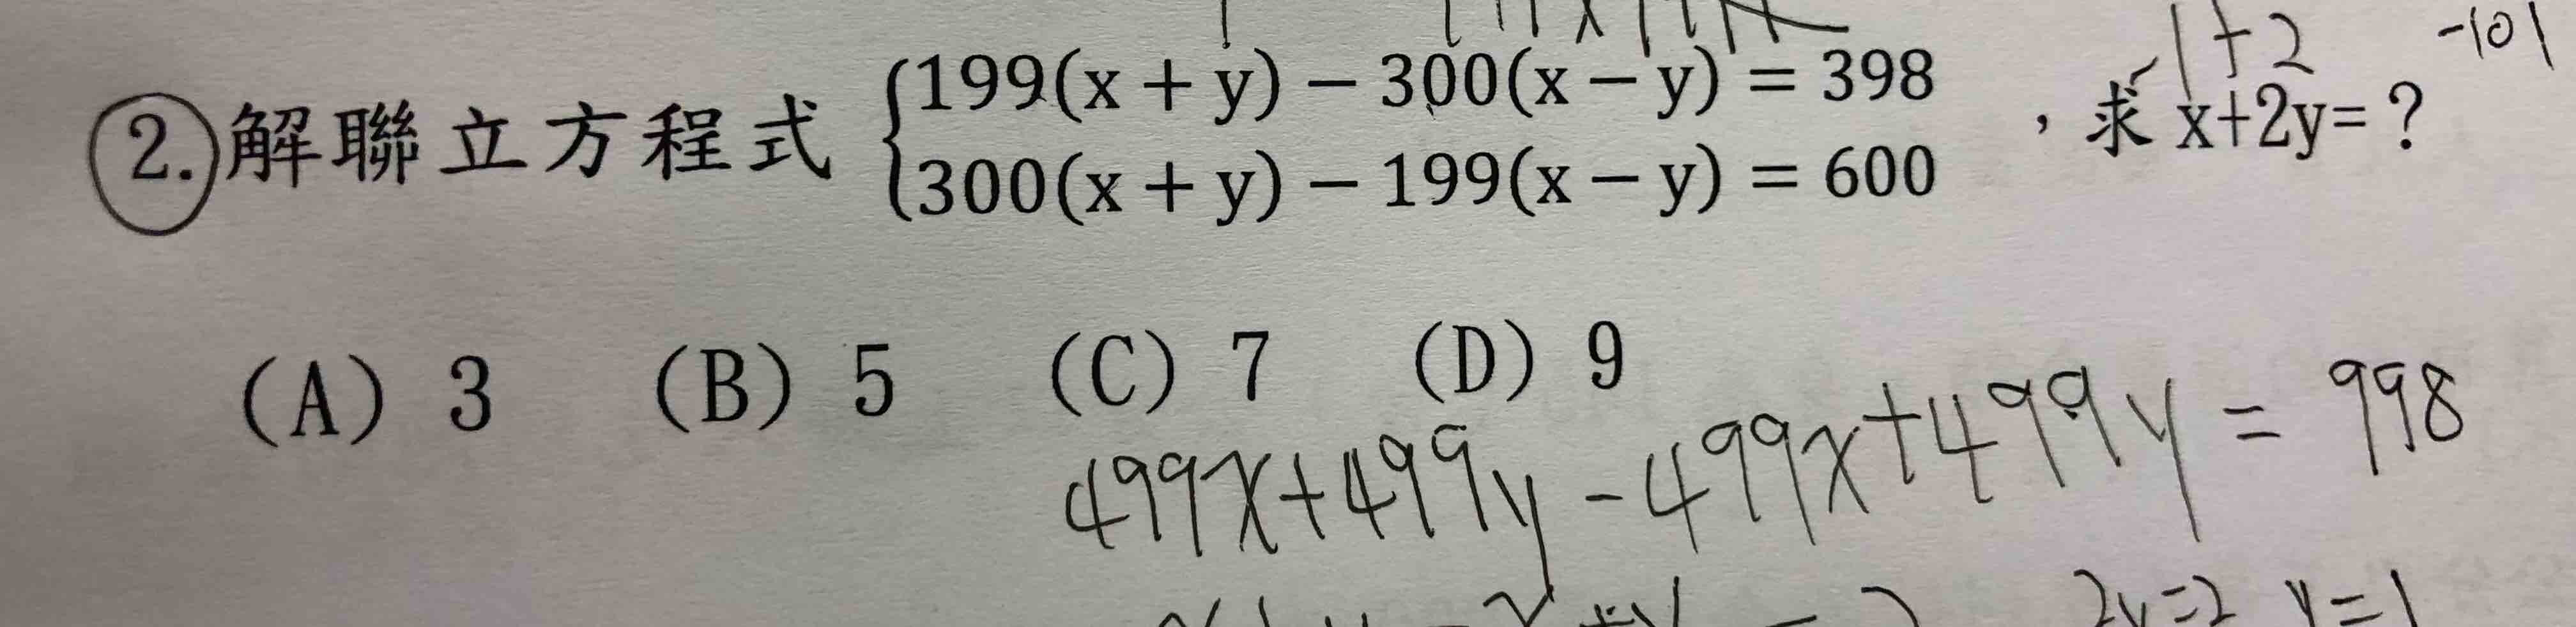 1+2 -101
2. 解聯立方程式 {199(x + y) − 300(x − y) = 398
300(x + y) − 199(x − y) = 600 ，求 x+2y=？
(A) 3 (B) 5 (C) 7 (D) 9
499x+499y-499x+499y = 998
2y=2 y=1